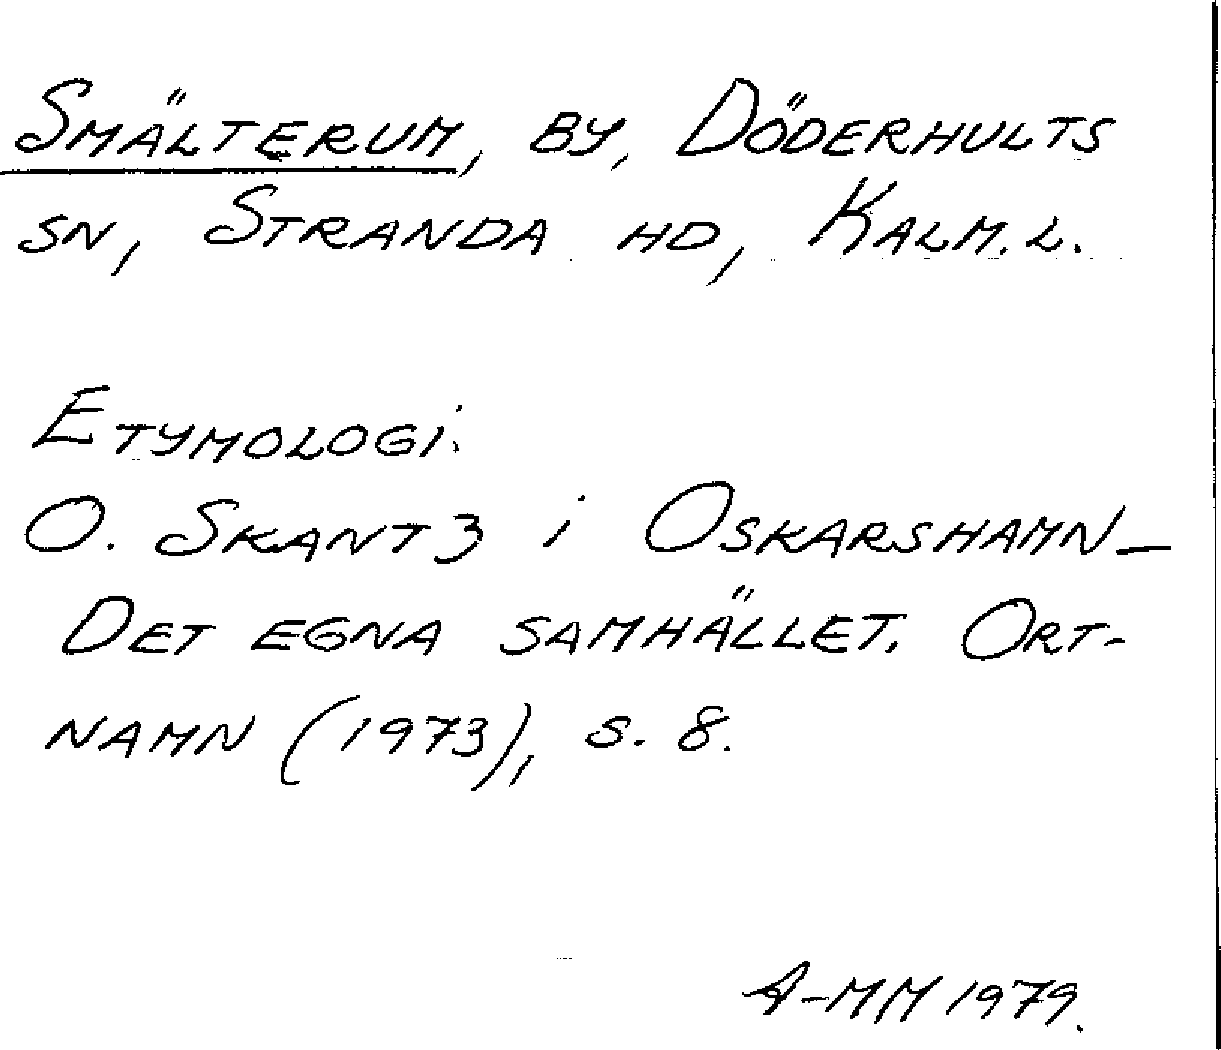 Smälterum, by, Döderhults
sn, Stranda hd, Kalm. l.
Etymologi.
O. Skantz i Oskarshamn –
Det egna samhället. Ort-
namn (1973), s. 8.
A-MM 1979.